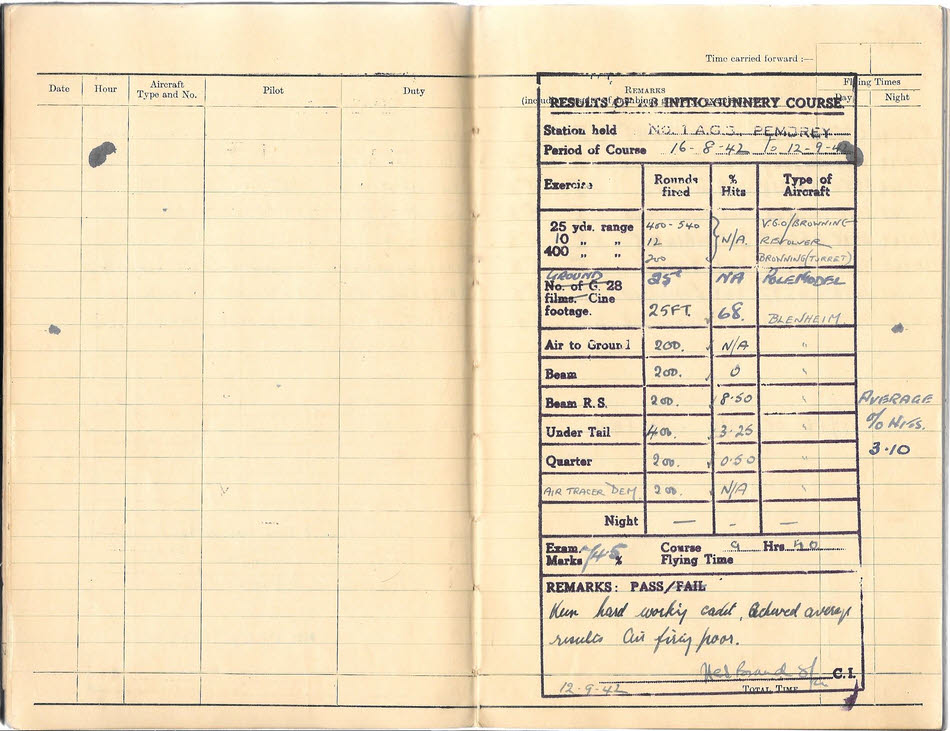 Date Hour Aircraft Type and No. Pilot Duty
Time carried forward :—
REMARKS
Flying Times
Day Night
RESULTS OF GUNNERY COURSE.
Station held NO. 1 A.G.S., PEMBREY
Period of Course 16-8-42 To 12-9-42
Exercise Rounds fired % Hits Type of Aircraft
25 yds. range 400-540 V.G.O/BROWNING
10 „ „ 12 N/A. REVOLVER
400 „ „ 200 BROWNING (TURRET)
GROUND 25ft NA POLE MODEL
No. of G. 28
films. Cine
footage. 25FT. 68. BLENHEIM
Air to Ground 200. N/A "
Beam 200. 0 "
Beam R.S. 200. 8.50 "
Under Tail 400. 3.25 "
Quarter 200. 0.50 "
AIR TRACER DEM. 200. N/A "
Night — - —
AVERAGE
% HITS.
3.10
Exam. Marks % Course Flying Time 9 Hrs
REMARKS: PASS/FAIL
Keen hard working cadet. average
results Air firing poor.
C.I.
12-9-42 TOTAL TIME